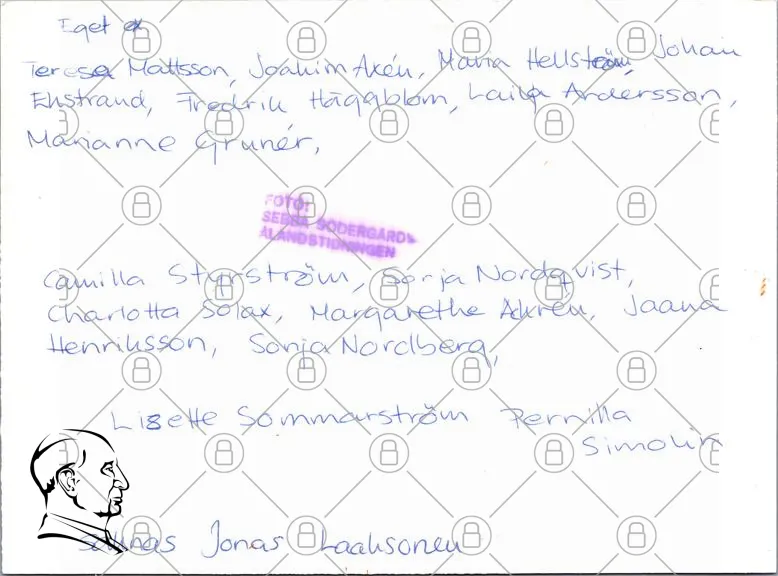 Eget ex
Teresa Mattsson, Joakim Axén, Maria Hellström, Johan
Ekstrand, Fredrik Häggblom, Laila Andersson,
Marianne Grunér,
FOTO:
SEBBE SÖDERGÅRDS
ÅLANDSTIDNINGEN
Camilla Styrström, Sonja Nordqvist,
Charlotta Solax, Margarethe Ahrén, Jaana
Henriksson, Sonja Nordberg,
Lisette Sommarström Pernilla
Simolin
Saknas Jonas Laaksonen